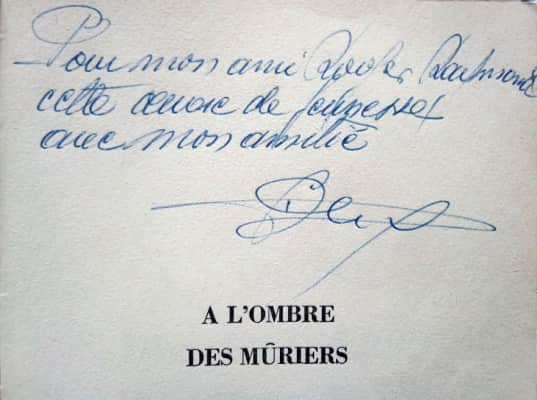 Pour mon ami
cette œuvre de jeunesse
avec mon amitié
A L'OMBRE
DES MÛRIERS